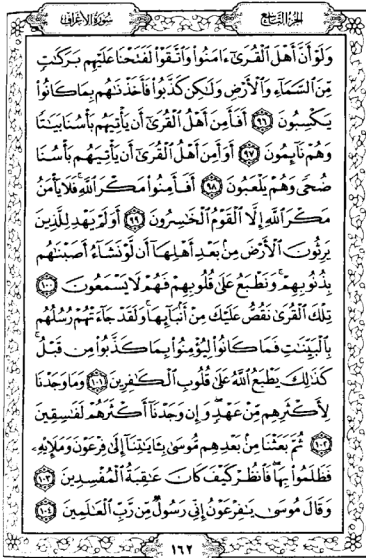 الجزء التاسع
سورة الأعراف
وَلَوْ أَنَّ أَهْلَ ٱلْقُرَىٰٓ ءَامَنُوا۟ وَٱتَّقَوْا۟ لَفَتَحْنَا عَلَيْهِم بَرَكَٰتٍ
مِّنَ ٱلسَّمَآءِ وَٱلْأَرْضِ وَلَٰكِن كَذَّبُوا۟ فَأَخَذْنَٰهُم بِمَا كَانُوا۟
يَكْسِبُونَ ٩٦ أَفَأَمِنَ أَهْلُ ٱلْقُرَىٰٓ أَن يَأْتِيَهُم بَأْسُنَا بَيَٰتًا
وَهُمْ نَآئِمُونَ ٩٧ أَوَأَمِنَ أَهْلُ ٱلْقُرَىٰٓ أَن يَأْتِيَهُم بَأْسُنَا
ضُحًى وَهُمْ يَلْعَبُونَ ٩٨ أَفَأَمِنُوا۟ مَكْرَ ٱللَّهِ فَلَا يَأْمَنُ
مَكْرَ ٱللَّهِ إِلَّا ٱلْقَوْمُ ٱلْخَٰسِرُونَ ٩٩ أَوَلَمْ يَهْدِ لِلَّذِينَ
يَرِثُونَ ٱلْأَرْضَ مِنۢ بَعْدِ أَهْلِهَآ أَن لَّوْ نَشَآءُ أَصَبْنَٰهُم
بِذُنُوبِهِمْ وَنَطْبَعُ عَلَىٰ قُلُوبِهِمْ فَهُمْ لَا يَسْمَعُونَ ١٠٠
تِلْكَ ٱلْقُرَىٰ نَقُصُّ عَلَيْكَ مِنْ أَنۢبَآئِهَا وَلَقَدْ جَآءَتْهُمْ رُسُلُهُم
بِٱلْبَيِّنَٰتِ فَمَا كَانُوا۟ لِيُؤْمِنُوا۟ بِمَا كَذَّبُوا۟ مِن قَبْلُ
كَذَٰلِكَ يَطْبَعُ ٱللَّهُ عَلَىٰ قُلُوبِ ٱلْكَٰفِرِينَ ١٠١ وَمَا وَجَدْنَا
لِأَكْثَرِهِم مِّنْ عَهْدٍ وَإِن وَجَدْنَآ أَكْثَرَهُمْ لَفَٰسِقِينَ
١٠٢ ثُمَّ بَعَثْنَا مِنۢ بَعْدِهِم مُّوسَىٰ بِـَٔايَٰتِنَآ إِلَىٰ فِرْعَوْنَ وَمَلَإِي۟هِۦ
فَظَلَمُوا۟ بِهَا فَٱنظُرْ كَيْفَ كَانَ عَٰقِبَةُ ٱلْمُفْسِدِينَ ١٠٣
وَقَالَ مُوسَىٰ يَٰفِرْعَوْنُ إِنِّى رَسُولٌ مِّن رَّبِّ ٱلْعَٰلَمِينَ ١٠٤
١٦٢